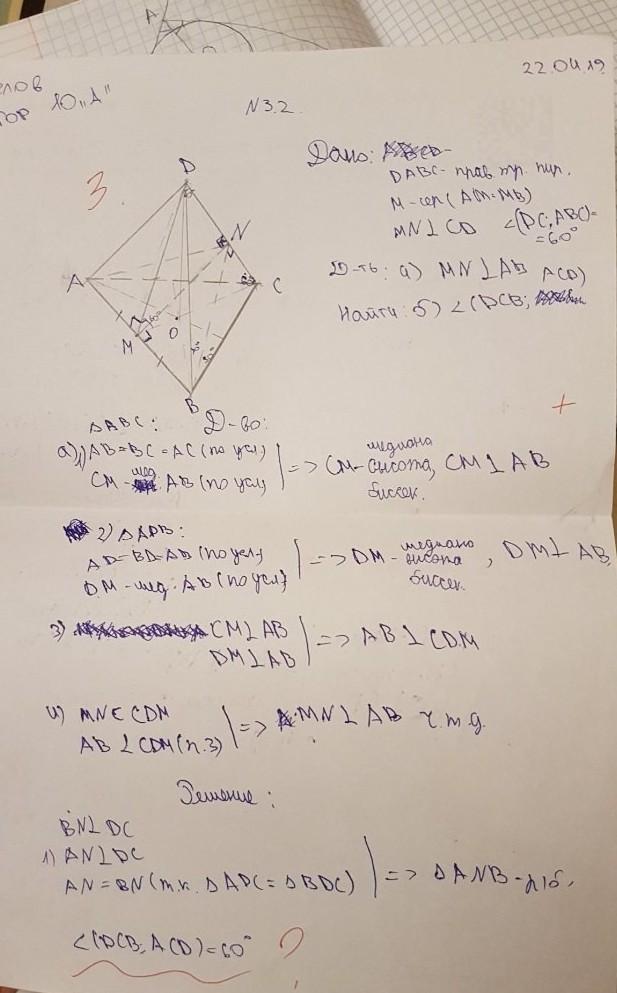 22.04.19
10 "А"
N3.2.
3.
Дано:
DABC - прав. тр. пир.
M - сер (AM=MB)
MN⊥CD ∠(DC; ABC)=
=60°
Д-ть: а) MN⊥AB
Найти: б) ∠(DCB; ACD)
D
N
A
C
M
O
B
+
△ABC: Д-во:
а) 1) AB=BC=AC (по усл)
CM - мед. AB (по усл) => CM - медиана высота, биссек. CM⊥AB
2) △ADB:
AD=BD=AB (по усл)
DM - мед. AB (по усл) => DM - медиана высота биссек. , DM⊥AB
3) CM⊥AB
DM⊥AB => AB⊥CDM
4) MN∈CDM
AB⊥CDM (п.3) => MN⊥AB ч.т.д.
Решение:
BN⊥DC
1) AN⊥DC
AN=BN (т.к. △ADC=△BDC) => △ANB - р/б.
∠(DCB; ACD)=60° ?